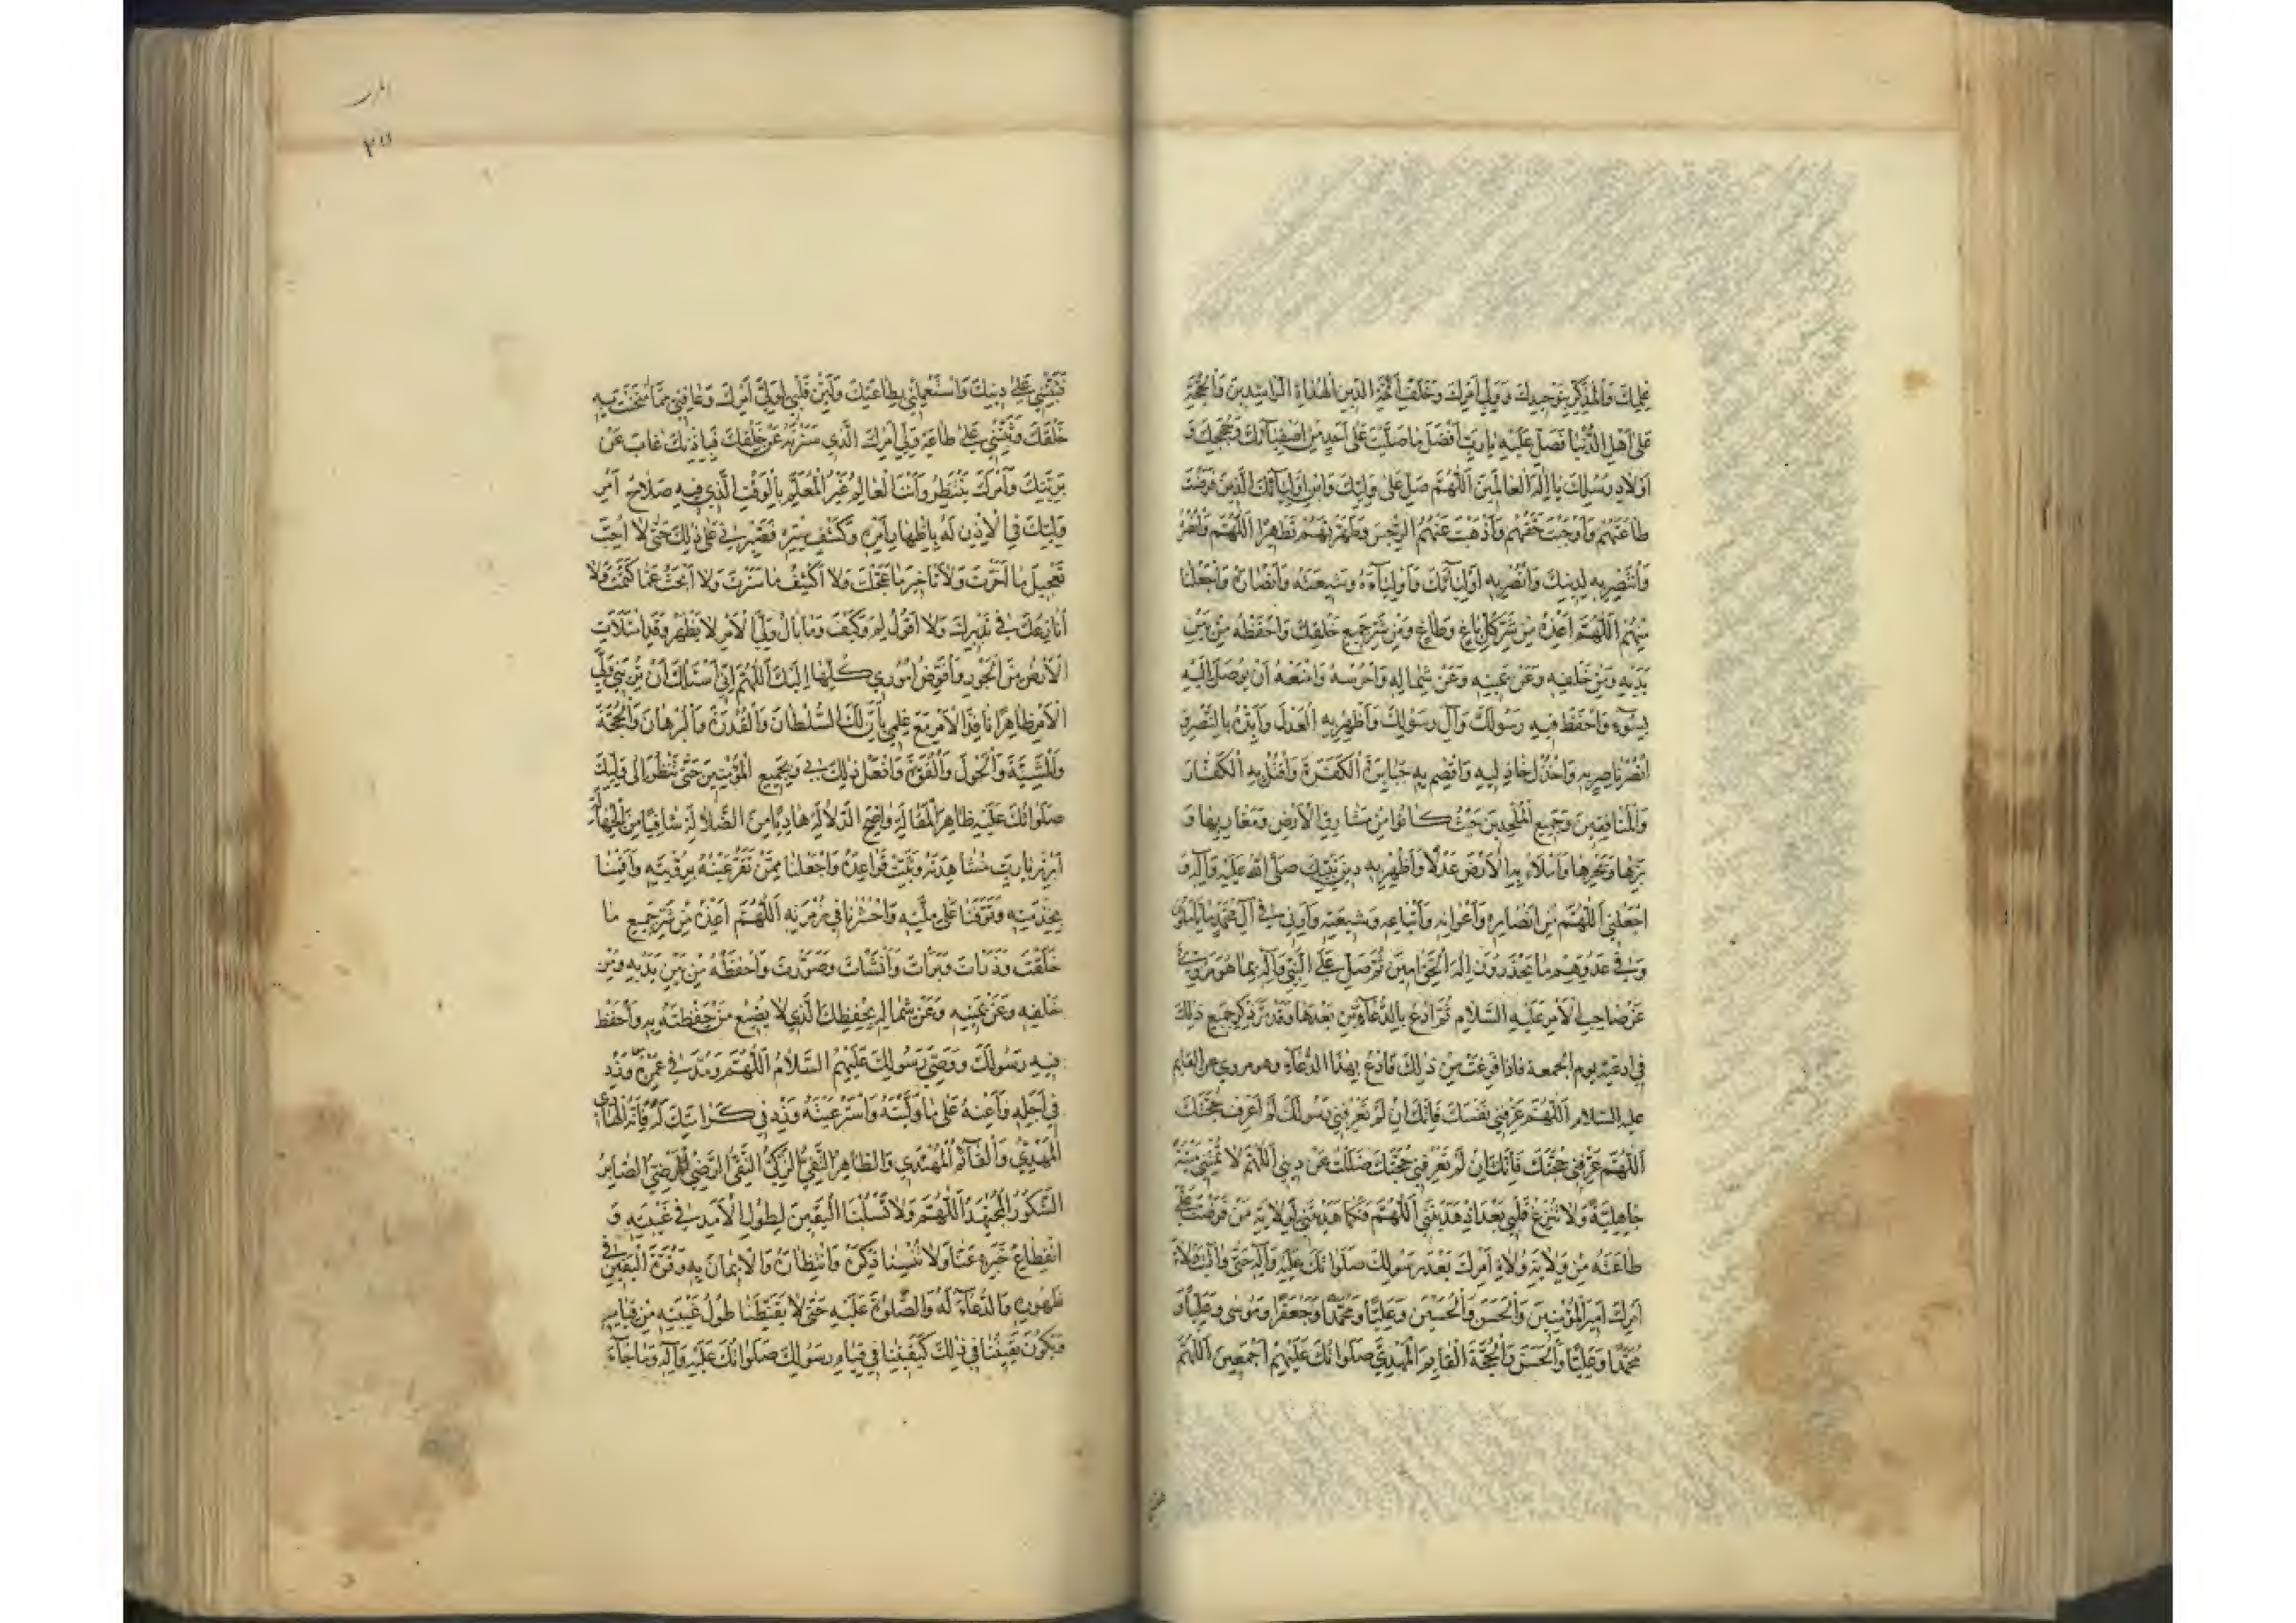 علمك والمذكر بتوحيدك وولي امرك وخلف ائمة الدين الهداة الراشدين والحجة
على اهل الدنيا فصل عليه يا رب افضل ما صليت على احد من اصفيائك وحججك و
اولاد رسلك يا اله العالمين اللهم صل على وليك وابن اوليائك الذين فرضت
طاعتهم واوجبت حقهم واذهبت عنهم الرجس وطهرتهم تطهيرا اللهم وانصره
وانتصر به لدينك وانصر به اوليائك واوليآءه وشيعته وانصاره واجعلنا
منهم اللهم اعذه من شر كل باغ وطاغ ومن شر جميع خلقك واحفظه من بين
يديه ومن خلفه وعن يمينه وعن شماله واحرسه وامنعه ان يوصل اليه
بسوء واحفظ فيه رسولك وآل رسولك واظهر به العدل وايده بالنصر و
انصر ناصريه واخذل خاذليه واقصم به جبابرة الكفرة واقتل به الكفار
والمنافقين وجميع الملحدين حيث كانوا من مشارق الارض ومغاربها و
برها وبحرها واملاء به الارض عدلا واظهر به دين نبيك صلى الله عليه وآله و
اجعلني اللهم من انصاره واعوانه واتباعه وشيعته وارني في آل محمد ما ياملون
وفي عدوهم ما يحذرون اله الحق امين ثم صل على النبي وآله بما هو مروي
عن صاحب الامر عليه السلام ثم ادع بالدعاء من بعدها وقد مر ذكر جميع ذلك
في ادعية يوم الجمعة فاذا فرغت من ذلك فادع بهذا الدعاء وهو مروي عن القايم
عليه السلام اللهم عرفني نفسك فانك ان لم تعرفني رسولك لم اعرف حجتك
اللهم عرفني حجتك فانك ان لم تعرفني حجتك ضللت عن ديني اللهم لا تمتني ميتة
جاهلية ولا تزغ قلبي بعد اذ هديتني اللهم فكما هديتني لولاية من فرضت علي
طاعته من ولاية ولاة امرك بعد رسولك صلواتك عليه وآله حتى واليت ولاة
امرك امير المؤمنين والحسن والحسين وعليا ومحمدا وجعفرا وموسى وعليا و
محمدا وعليا والحسن والحجة القايم المهدي صلواتك عليهم اجمعين اللهم
فثبتني على دينك واستعملني بطاعتك ولين قلبي لولي امرك وعافني مما امتحنت به
خلقك وثبتني على طاعة ولي امرك الذي سترته عن خلقك فباذنك غاب عن
بريتك وامرك ينتظر وانت العالم غير المعلم بالوقت الذي فيه صلاح امر
وليك في الاذن له باظهار امره وكشف ستره فصبرني على ذلك حتى لا احب
تعجيل ما اخرت ولا تاخير ما عجلت ولا اكشف ما سترت ولا ابحث عما كتمت ولا
انازعك في تدبيرك ولا اقول لم وكيف وما بال ولي الامر لا يظهر وقد امتلات
الارض من الجور وافوض اموري كلها اليك اللهم اني اسئلك ان تريني ولي
الامر ظاهرا نافذ الامر مع علمي بان لك السلطان والقدرة والبرهان والحجة
والمشية والحول والقوة وافعل ذلك بي وبجميع المؤمنين حتى ننظر الى وليك
صلواتك عليه ظاهر المقالة واضح الدلالة هاديا من الضلالة شافيا من الجهالة
ابرز يا رب مشاهدته وثبت قواعده واجعلنا ممن تقر عينه برؤيته واقمنا
بخدمته وتوفنا على ملته واحشرنا في زمرته اللهم اعذه من شر جميع ما
خلقت وذرات وبرات وانشات وصورت واحفظه من بين يديه ومن
خلفه وعن يمينه وعن شماله بحفظك الذي لا يضيع من حفظته به واحفظ
فيه رسولك ووصي رسولك عليهم السلام اللهم ومد في عمره وزد
في اجله واعنه على ما وليته واسترعيته وزد في كرامتك له فانه الهادي
المهدي والقائم المهتدي والطاهر التقي الزكي النقي الرضي المرضي الصابر
الشكور المجتهد اللهم ولا تسلبنا اليقين لطول الامد في غيبته و
انقطاع خبره عنا ولا تنسنا ذكره وانتظاره والايمان به وقوة اليقين في
ظهوره والدعاء له والصلوة عليه حتى لا يقنطنا طول غيبته من قيامه
ويكون يقيننا في ذلك كيقيننا في قيام رسولك صلواتك عليه وآله وما جاء